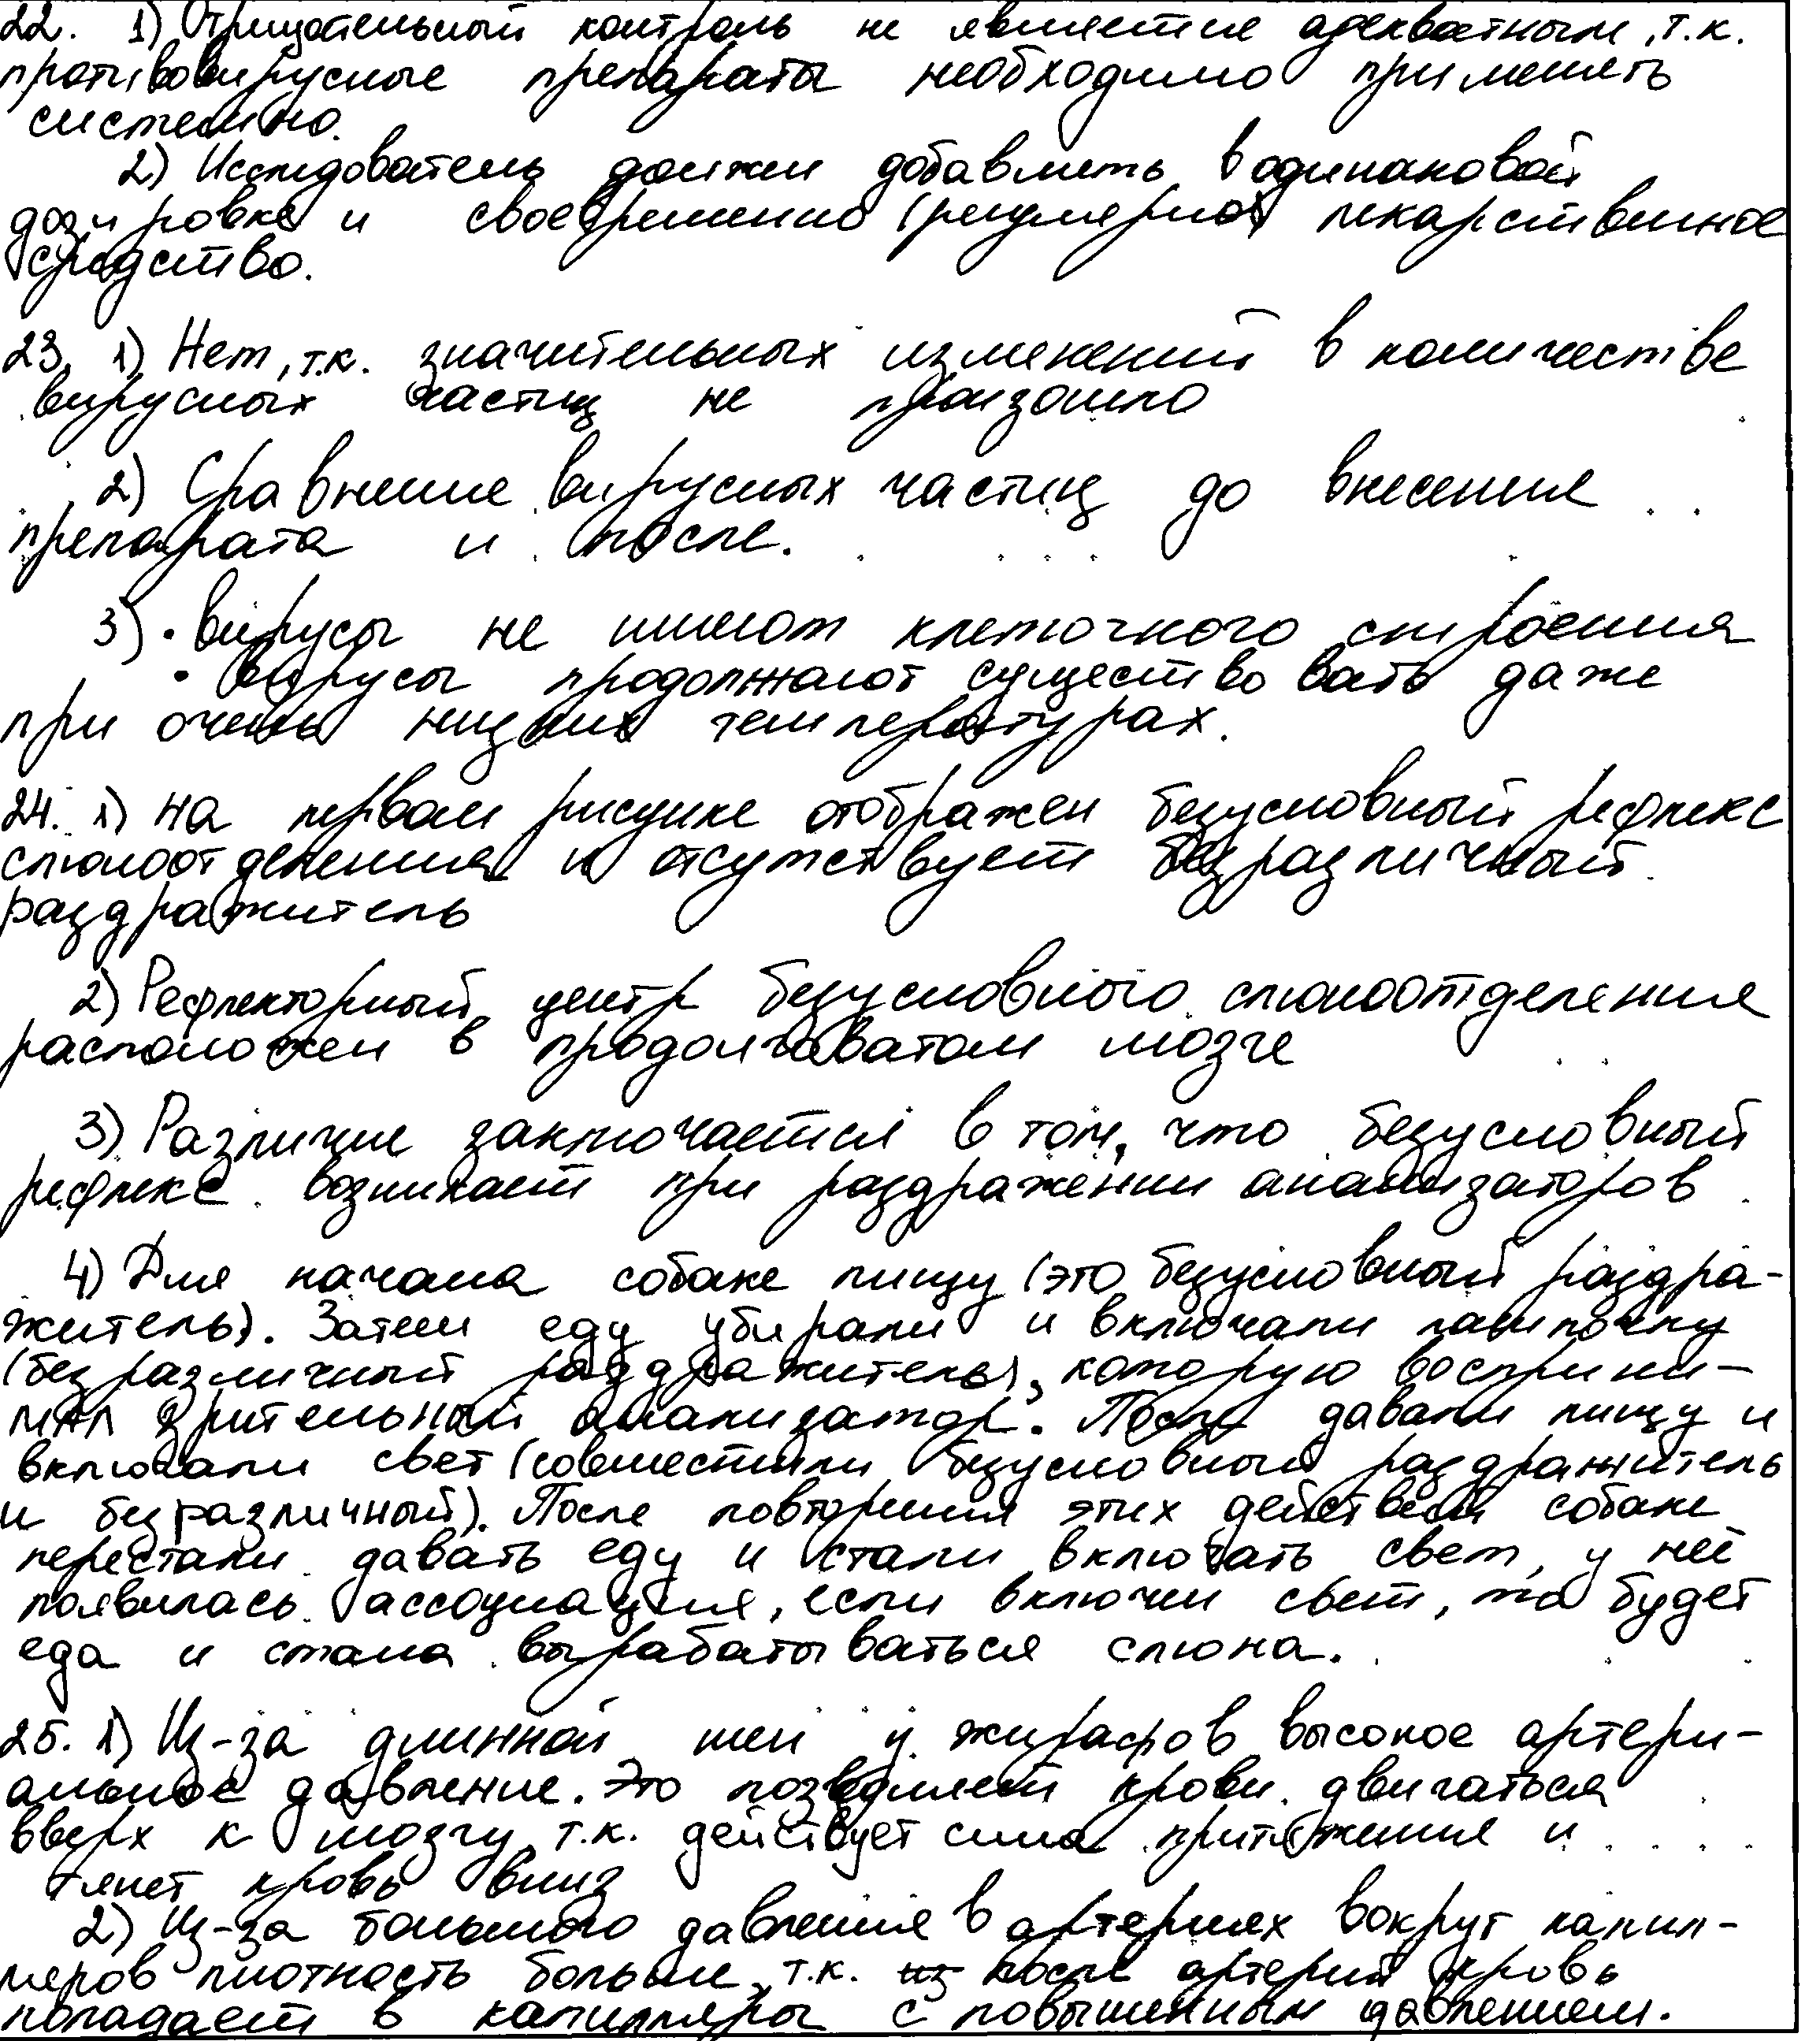 22. 1) Отрицательный контроль не является адекватным, т.к.
противовирусные препараты необходимо применять
системно.
2) Исследователь должен добавлять в одинаковой
дозировке и своевременно (регулярно) лекарственное
средство.
23. 1) Нет, т.к. значительных изменений в количестве
вирусных частиц не произошло
2) Сравнение вирусных частиц до внесения
препарата и после.
3) • вирусы не имеют клеточного строения
• Вирусы продолжают существовать даже
при очень низких температурах.
24. 1) На первом рисунке отображен безусловный рефлекс
слюноотделения и отсутствует безразличный
раздражитель
2) Рефлекторный центр безусловного слюноотделения
расположен в продолговатом мозге
3) Различие заключается в том, что безусловный
рефлекс возникает при раздражении анализаторов
4) Для начала собаке пищу (это безусловный раздра-
житель). Затем еду убирали и включали лампочку
(безразличный раздражитель), которую восприни-
мал зрительный анализатор. После давали пищу и
включали свет (совместили безусловный раздражитель
и безразличный). После повторения этих действий собаке
перестали давать еду и стали включать свет, у неё
появилась ассоциация, если включен свет, то будет
еда и стала вырабатываться слюна.
25. 1) Из-за длинной шеи у жирафов высокое артери-
альное давление. Это позволяет крови двигаться
вверх к мозгу, т.к. действует сила притяжения и
тянет кровь вниз
2) Из-за большого давления в артериях вокруг капил-
ляров плотность больше, т.к. из после артерий кровь
попадает в капилляры с повышенным давлением.